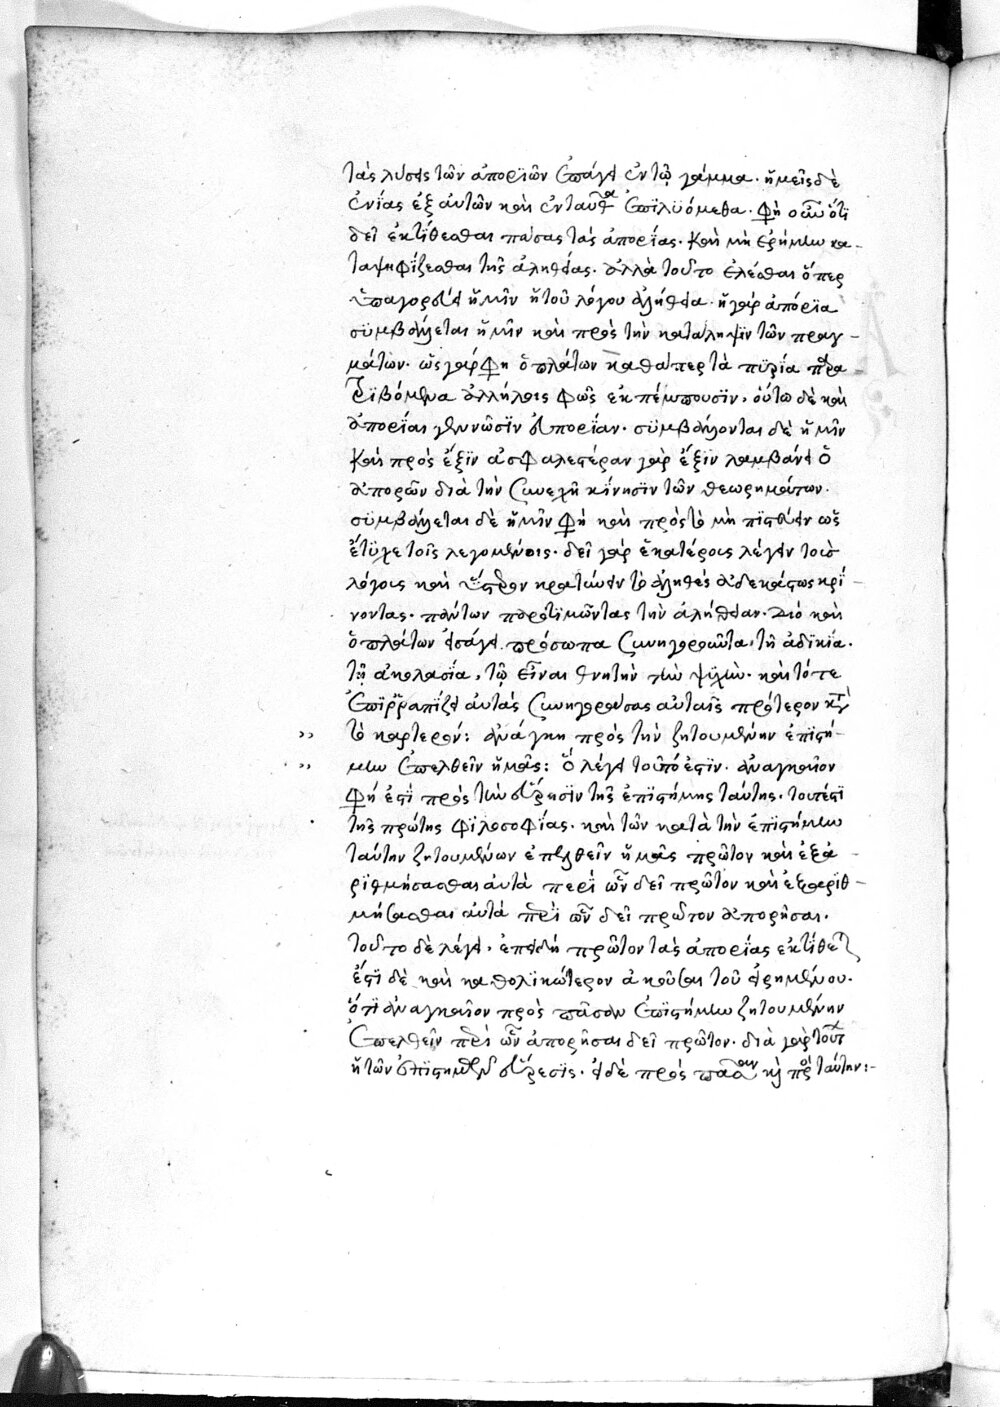 τὰς λύσεις τῶν ἀποριῶν ἐπάγει ἐν τῷ γάμμα. ἡμεῖς δὲ
ἐνίας ἐξ αὐτῶν καὶ ἐνταῦθα ἐπιλυόμεθα. φησὶν οὖν ὅτι
δεῖ ἐκτίθεσθαι πάσας τὰς ἀπορίας. καὶ μὴ ἐρήμην κα-
ταψηφίζεσθαι τῆς ἀληθείας. ἀλλὰ τοῦτο ἑλέσθαι ὅπερ
ὑπαγορεύει ἡμῖν ἡ τοῦ λόγου ἀλήθεια. ἡ γὰρ ἀπορία
συμβάλλεται ἡμῖν καὶ πρὸς τὴν κατάληψιν τῶν πραγ-
μάτων. ὡς γάρ φησιν ὁ πλάτων καθάπερ τὰ πυρεῖα παρα
τριβόμενα ἀλλήλοις φῶς ἐκπέμπουσιν, οὕτω δὲ καὶ
ἀπορίαι γεννῶσιν εὐπορίαν. συμβάλλονται δὲ ἡμῖν
καὶ πρὸς ἕξιν ἀσφαλεστέραν γὰρ ἕξιν λαμβάνει ὁ
ἀπορῶν διὰ τὴν συνεχῆ κίνησιν τῶν θεωρημάτων.
συμβάλλεται δὲ ἡμῖν φησὶ καὶ πρὸς τὸ μὴ πιστεύειν ὡς
ἔτυχε τοῖς λεγομένοις. δεῖ γὰρ ἑκατέροις λέγειν τοῖς
λόγοις καὶ ὕστερον κρατύνειν τὸ ἀληθὲς ἀδεκάστως κρί-
νοντας. πάντων προτιμῶντας τὴν ἀλήθειαν. διὸ καὶ
ὁ πλάτων εἰσάγει πρόσωπα συνηγοροῦντα, τῇ ἀδικίᾳ.
τῇ ἀκολασίᾳ, τῷ εἶναι θνητὴν τὴν ψυχήν. καὶ τότε
ἐπιρραπίζει αὐτὰς συνηγορούσας αὐταῖς πρότερον κατὰ
τὸ καρτερόν: ἀνάγκη πρὸς τὴν ζητουμένην ἐπιστή-
μην ἐπελθεῖν ἡμᾶς: ὃ λέγει τοῦτό ἐστιν. ἀναγκαῖον
φησὶ ἐστὶ πρὸς τὴν εὕρεσιν τῆς ἐπιστήμης ταύτης. τουτέστι
τῆς πρώτης φιλοσοφίας. καὶ τῶν κατὰ τὴν ἐπιστήμην
ταύτην ζητουμένων ἐπελθεῖν ἡμᾶς πρῶτον καὶ ἐξα-
ριθμήσασθαι αὐτὰ περὶ ὧν δεῖ πρῶτον καὶ ἐξαριθ-
μήσασθαι αὐτὰ περὶ ὧν δεῖ πρῶτον ἀπορῆσαι.
τοῦτο δὲ λέγει, ἐπειδὴ πρῶτον τὰς ἀπορίας ἐκτίθεται
ἔστι δὲ καὶ καθολικώτερον ἀκοῦσαι τοῦ εἰρημένου.
ὅτι ἀναγκαῖον πρὸς πᾶσαν ἐπιστήμην ζητουμένην
ἐπελθεῖν περὶ ὧν ἀπορῆσαι δεῖ πρῶτον. διὰ γὰρ τούτου
ἡ τῶν ἐπιστημῶν εὕρεσις. εἰ δὲ πρὸς πᾶσαν καὶ πρὸς ταύτην:-